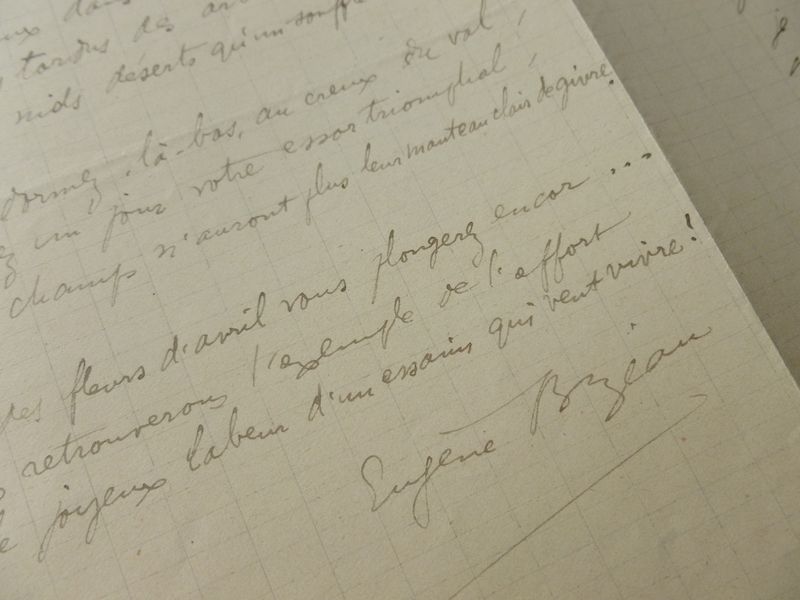 dans
tordus des
nids déserts qu'un souffle
dormez, là-bas, au creux du val,
un jour votre essor triomphal,
champs n'auront plus leur manteau clair de givre.
des fleurs d'avril vous plongerez encor ...
retrouverons l'exemple de l'effort
joyeux labeur d'un essaim qui veut vivre!
Eugène Bizeau